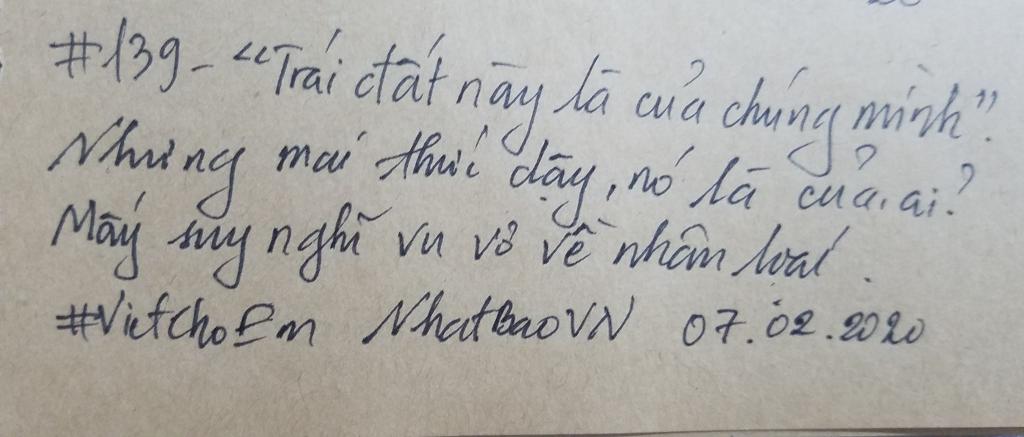 #139 - "Trái đất này là của chúng mình".
Nhưng mai thức dậy, nó là của ai?
Mấy suy nghĩ vu vơ về nhân loại.
#VietChoEm NhatBaoVN 07.02.2020